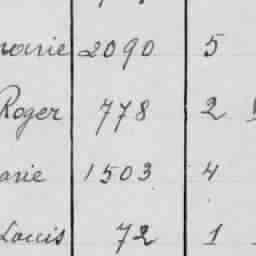 marie 2090 5
Roger 778 2
arie 1503 4
Louis 72 1